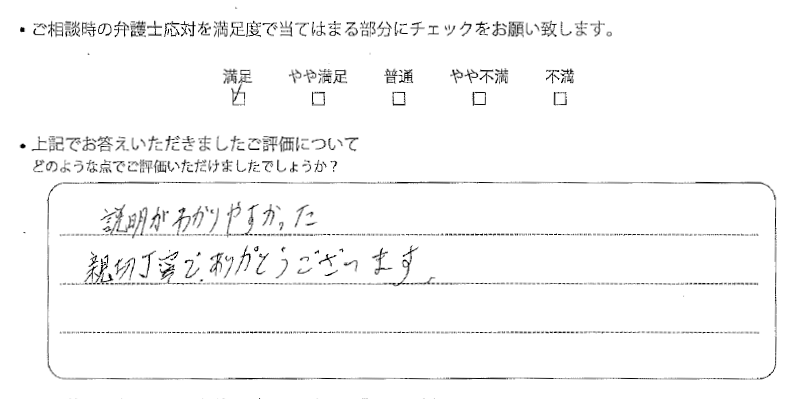 ・ご相談時の弁護士応対を満足度で当てはまる部分にチェックをお願い致します。
満足 やや満足 普通 やや不満 不満
☑ ☐ ☐ ☐ ☐
・上記でお答えいただきましたご評価について
どのような点でご評価いただけましたでしょうか？
説明がわかりやすかった
親切丁寧で、ありがとうございます。